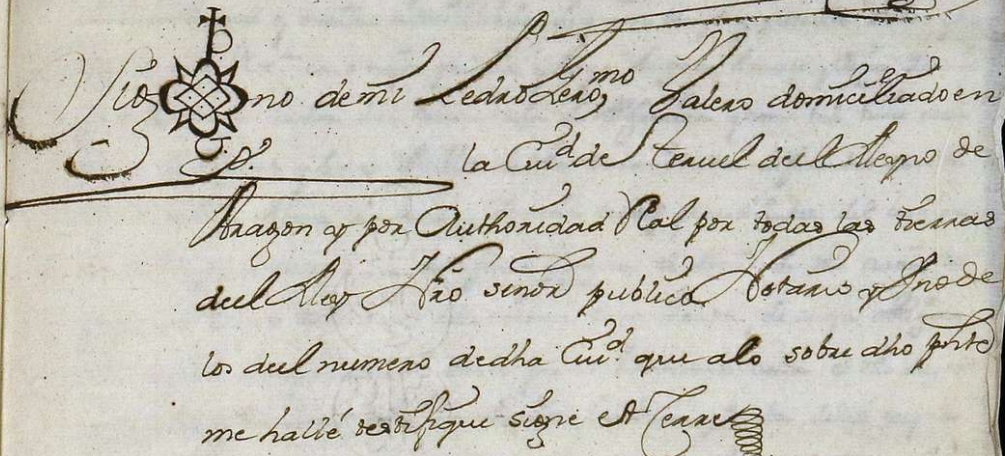 Sig no de mi Pedro Gero.mo Valero domiciliado en
la Ciud. de Teruel del Reyno de
Aragon y por Authoridad Real por todas las tierras
del Rey Nro señor publico Notario y Vno de
los del numero de dha Ciud. que a lo sobre dho pnte
me hallé testifique signe et Cerre